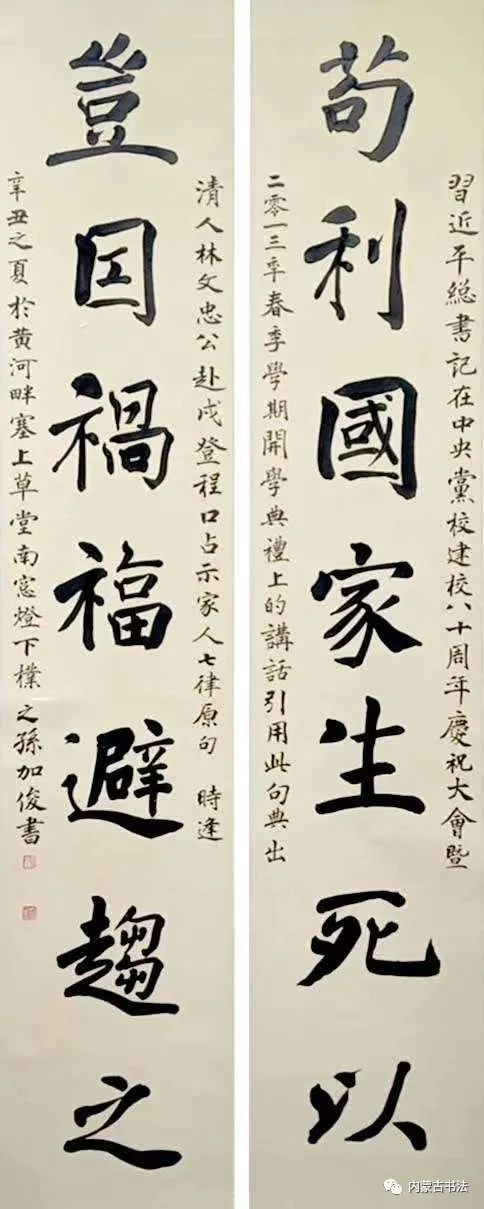 習近平總書記在中央黨校建校八十周年慶祝大會暨
苟利國家生死以
二零一三秊春季學期開學典禮上的講話引用此句典出
清人林文忠公赴戍登程口占示家人七律原句 時逢
豈因禍福避趨之
辛丑之夏於黄河畔塞上草堂南窓燈下樸之孫加俊書
内蒙古书法